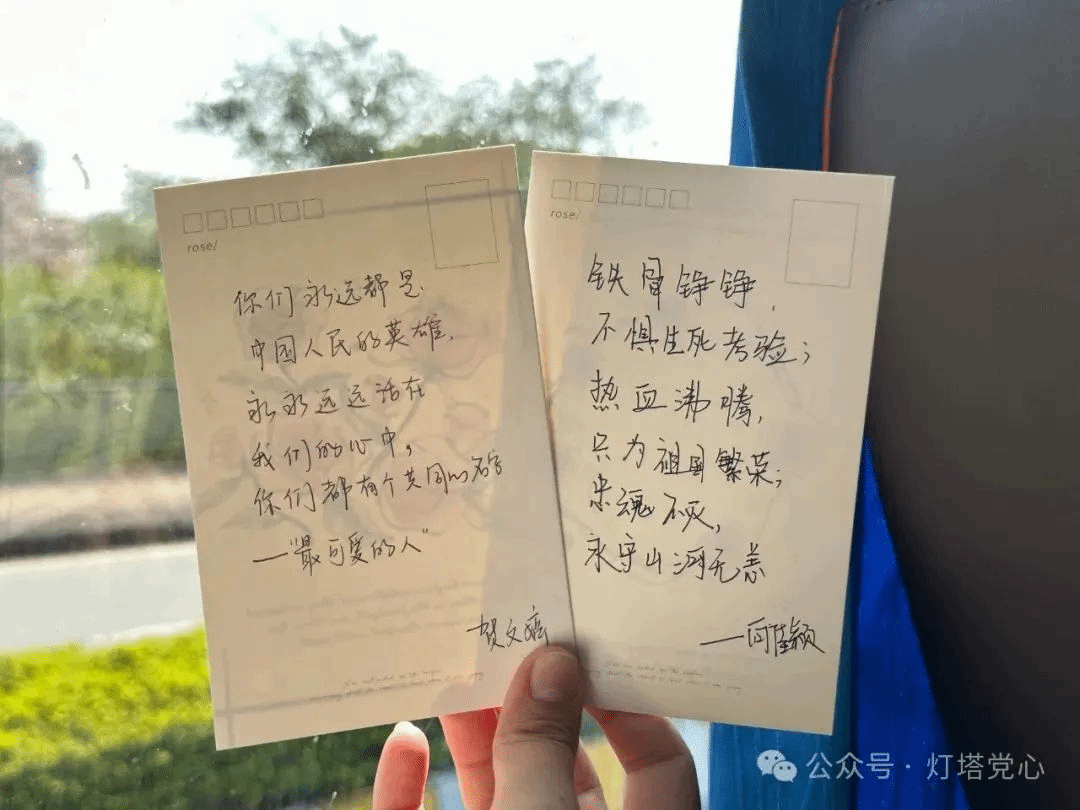 rose/
你们永远都是
中国人民的英雄,
永永远远活在
我们的心中,
你们都有个共同的名字
—"最可爱的人"
贺文
rose/
铁骨铮铮,
不惧生死考验;
热血沸腾,
只为祖国繁荣;
忠魂不灭,
永守山河无恙
—何佳颖
公众号·灯塔党心